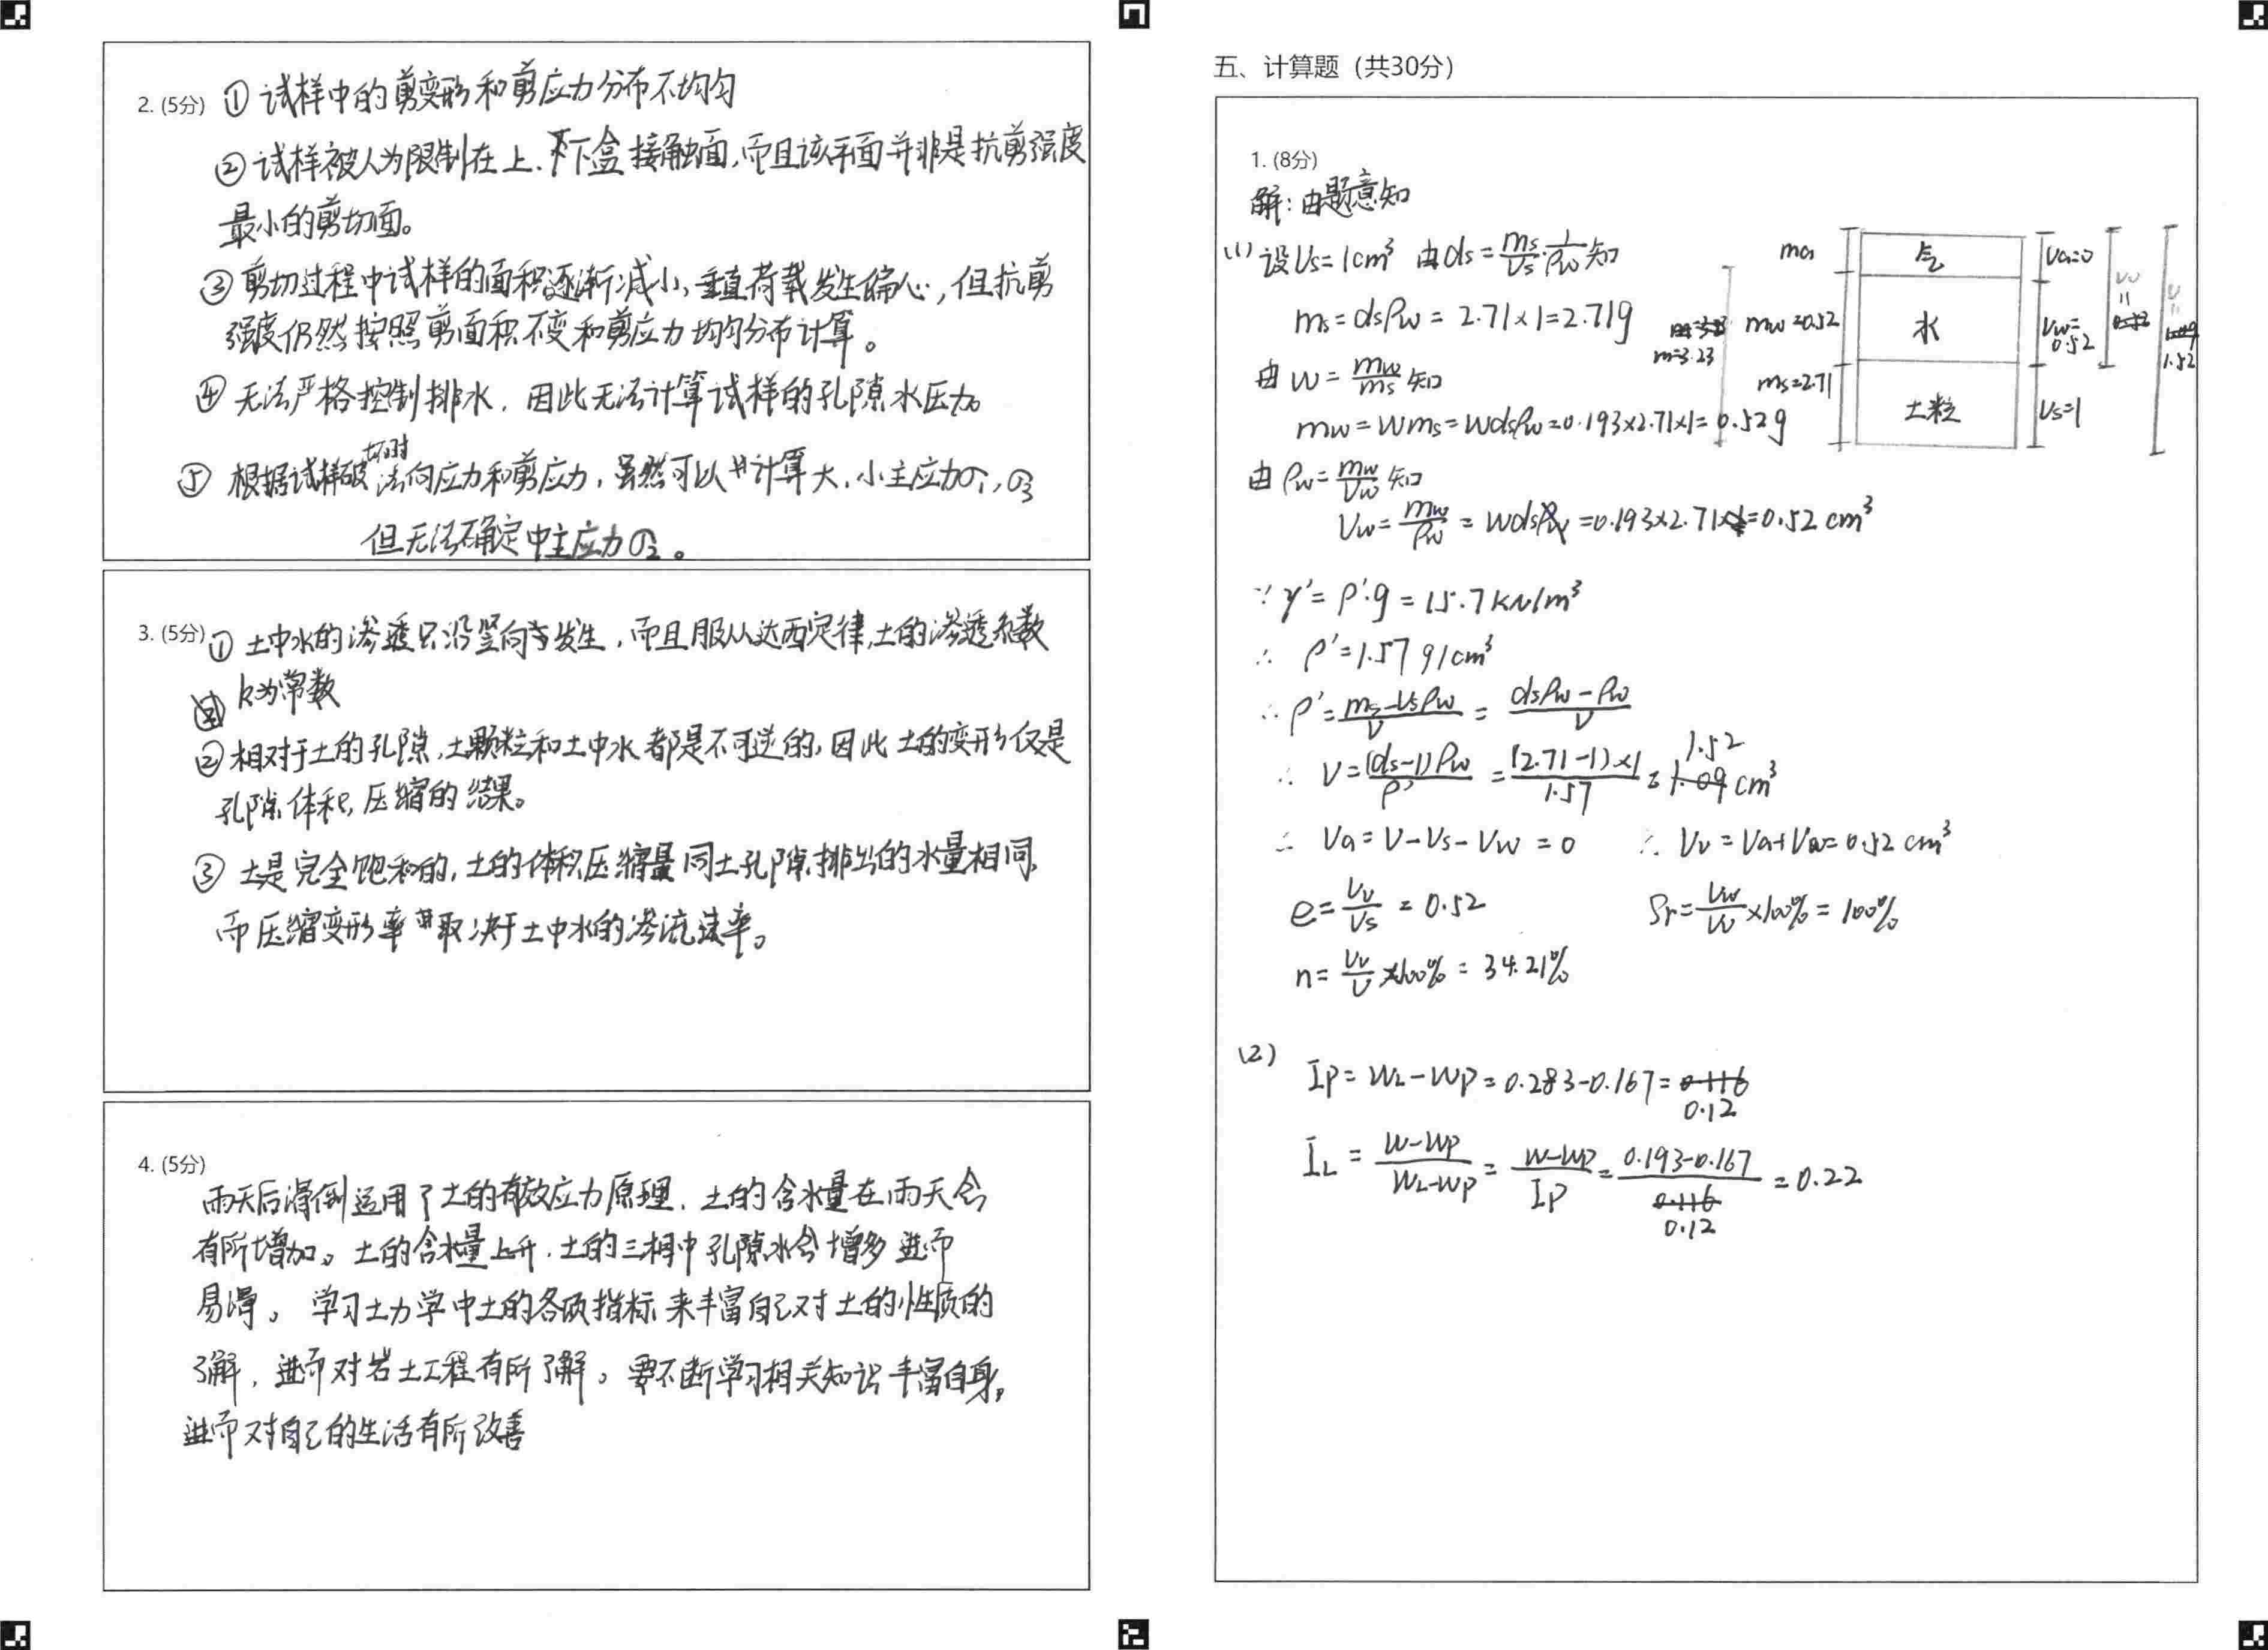 2. (5分) ① 试样中的剪变形和剪应力分布不均匀
② 试样被人为限制在上、下盒接触面,而且该平面并非是抗剪强度
最小的剪切面。
③ 剪切过程中试样的面积逐渐减小,垂直荷载发生偏心,但抗剪
强度仍然按照剪面积不变和剪应力均匀分布计算。
④ 无法严格控制排水,因此无法计算试样的孔隙水压力
⑤ 根据试样破坏时法向应力和剪应力,虽然可以计算大、小主应力σ1,σ3
但无法确定中主应力σ2。
3. (5分) ① 土中水的渗透只沿竖向发生,而且服从达西定律,土的渗透系数
k为常数
② 相对于土的孔隙,土颗粒和土中水都是不可逆的,因此土的变形仅是
孔隙体积压缩的结果。
③ 土是完全饱和的,土的体积压缩量同土孔隙排出的水量相同,
而压缩变形率取决于土中水的渗流速率。
4. (5分)
雨天后滑倒运用了土的有效应力原理,土的含水量在雨天会
有所增加。土的含水量上升,土的三相中孔隙水会增多进而
易滑。学习土力学中土的各项指标来丰富自己对土的性质的
了解,进而对岩土工程有所了解。要不断学习相关知识丰富自身,
进而对自己的生活有所改善
五、计算题(共30分)
1. (8分)
解:由题意知
(1) 设Vs=1cm³ 由ds=ms/Vs·1/ρw知
ms=dsρw=2.71×1=2.71g
由w=mw/ms知
mw=wms=wdsρw=0.193×2.71×1=0.52g
由ρw=mw/Vw知
Vw=mw/ρw=wds=0.193×2.71=0.52cm³
∵ γ'=ρ'·g=15.7kN/m³
∴ ρ'=1.57g/cm³
∴ ρ'=(ms-Vsρw)/V=(dsρw-ρw)/V
∴ V=(ds-1)ρw/ρ'=(2.71-1)×1/1.57=1.52cm³
∴ Va=V-Vs-Vw=0 ∴ Vv=Va+Vw=0.52cm³
e=Vv/Vs=0.52 Sr=Vw/Vv×100%=100%
n=Vv/V×100%=34.21%
(2)
IP=WL-WP=0.283-0.167=0.12
IL=(W-WP)/(WL-WP)=(W-WP)/IP=(0.193-0.167)/0.12=0.22
ma 气 Va=0
m=3.23 mw=0.52 水 Vw=0.52 Vv= V=1.52
ms=2.71 土粒 Vs=1